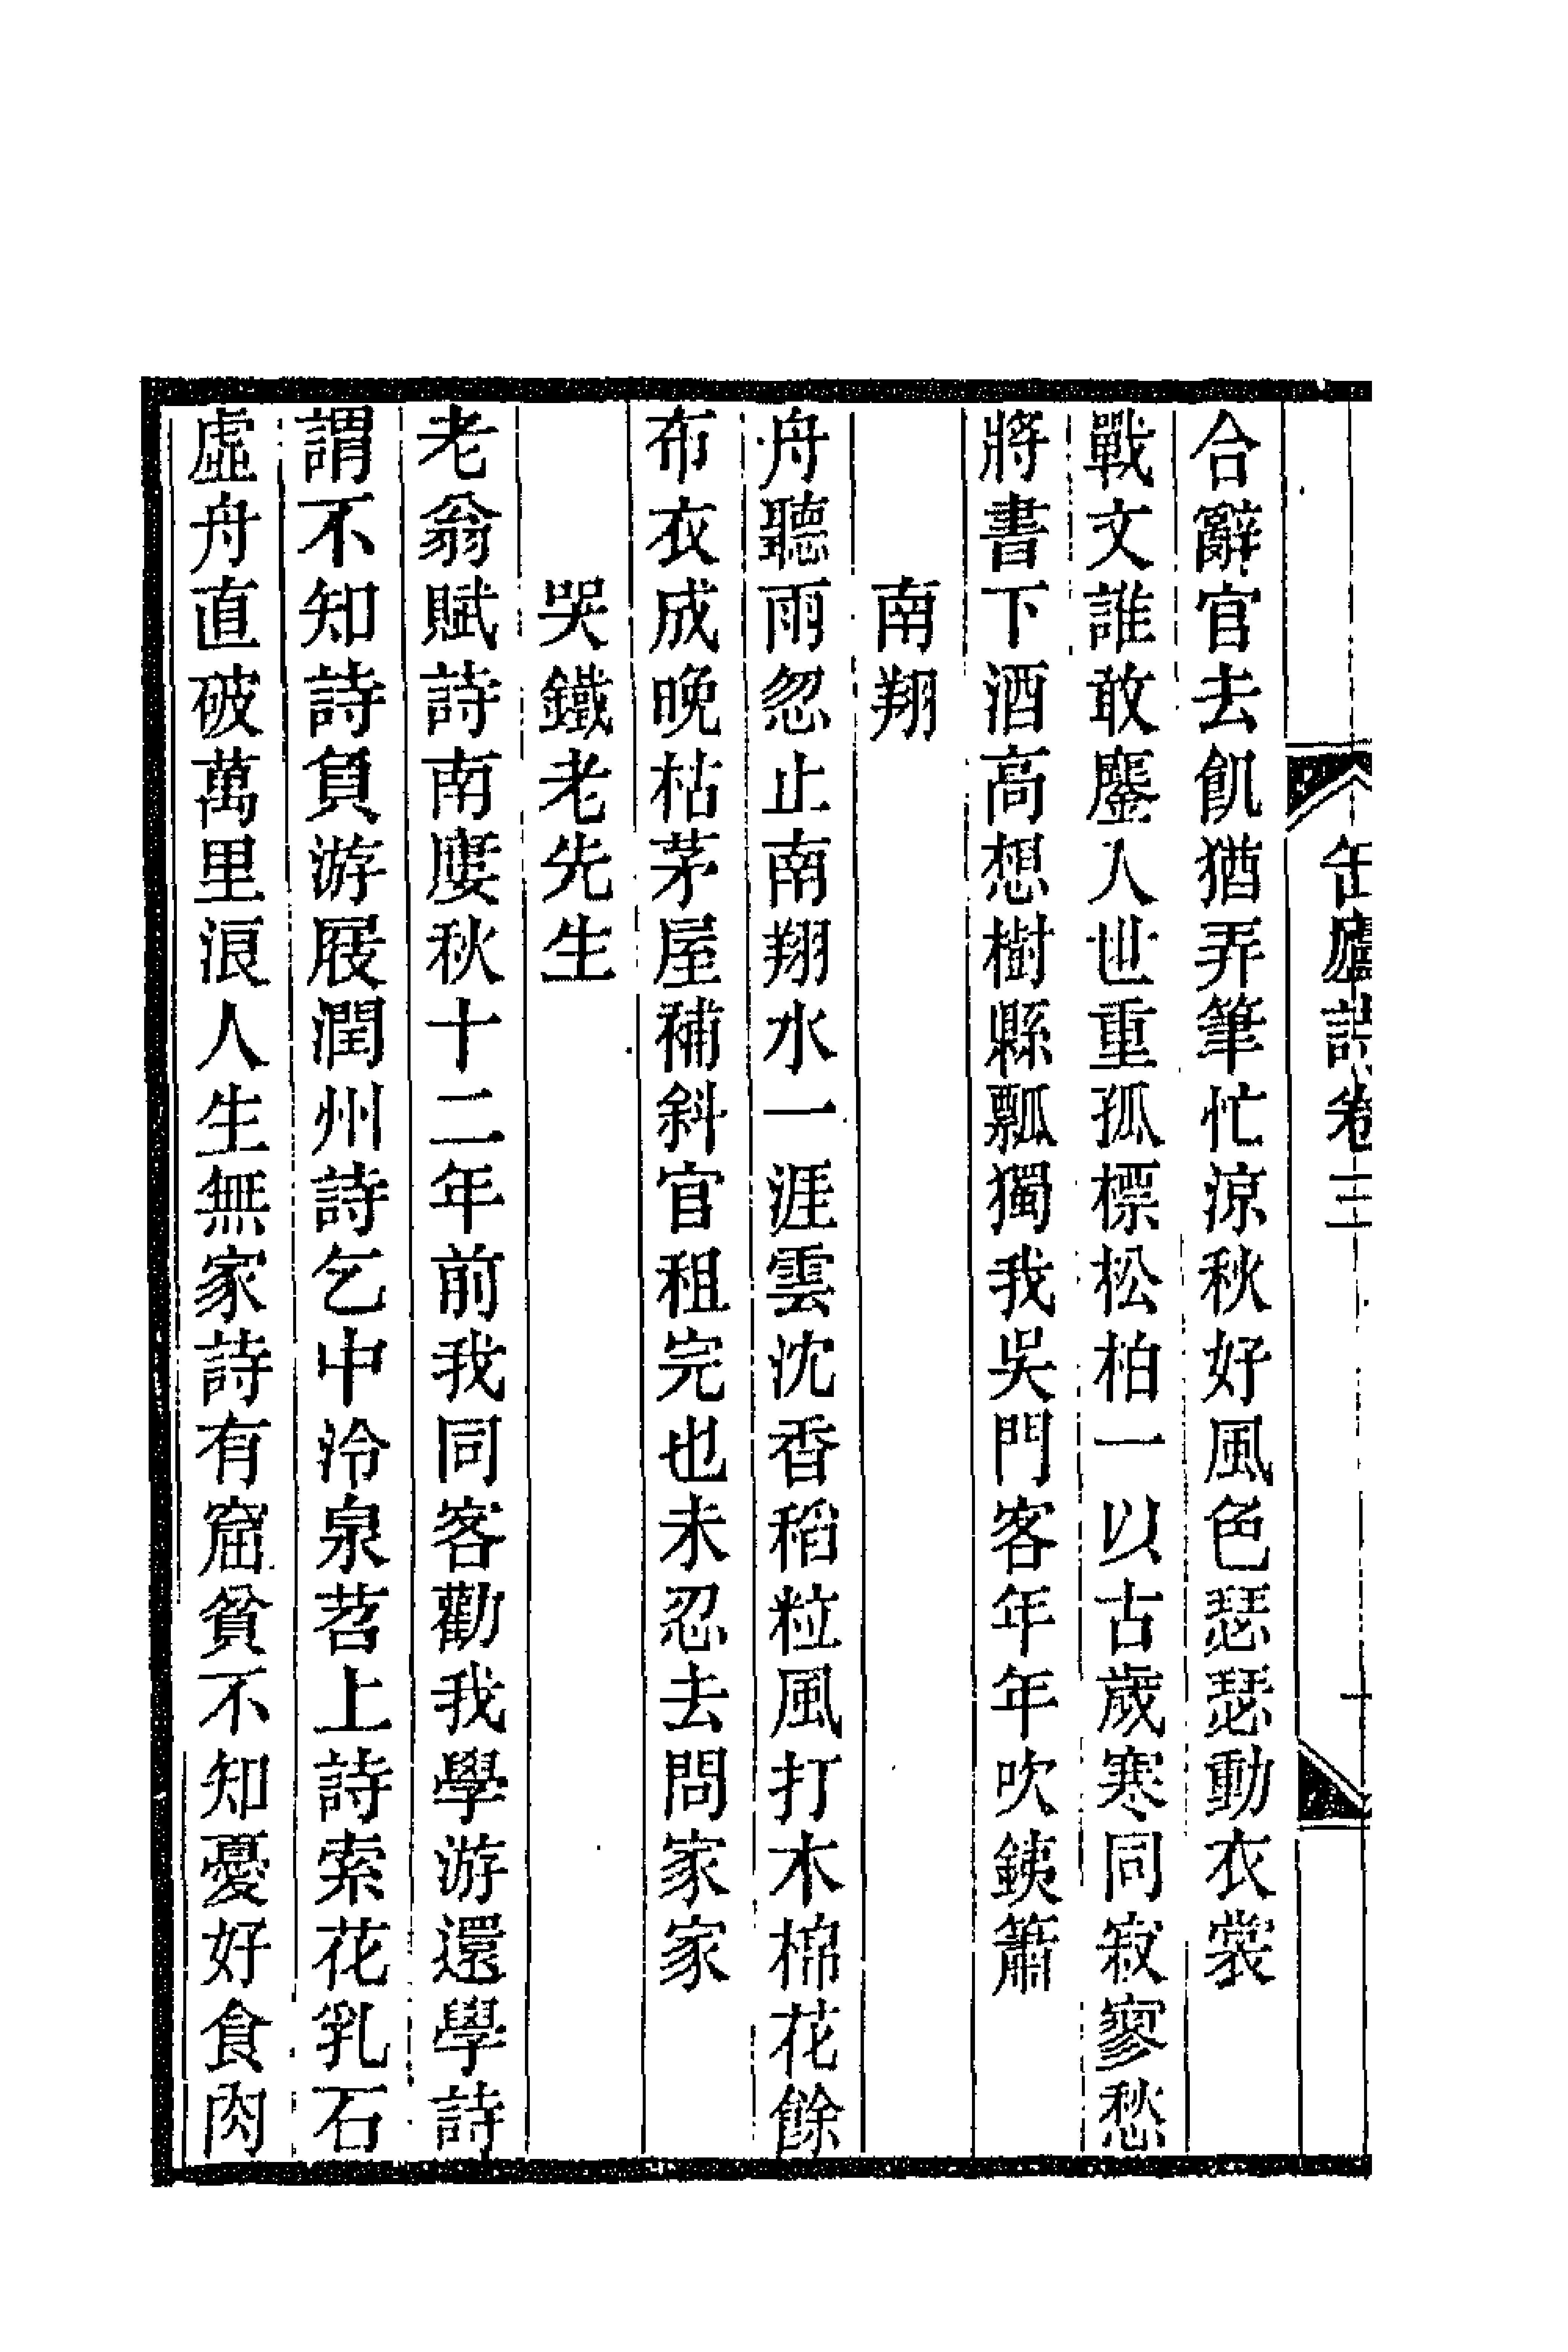 缶廬詩卷三
十
合辭官去飢猶弄筆忙涼秋好風色瑟瑟動衣裳
戰文誰敢鏖人世重孤標松柏一以古歲寒同寂寥愁
將書下酒高想樹縣瓢獨我吳門客年年吹銕簫
南翔
舟聽雨忽止南翔水一涯雲沈香稻粒風打木棉花餘
布衣成晚枯茅屋補斜官租完也未忍去問家家
哭鐵老先生
老翁賦詩南廔秋十二年前我同客勸我學游還學詩
謂不知詩負游屐潤州詩乞中泠泉苕上詩索花乳石
虛舟直破萬里浪人生無家詩有窟貧不知憂好食肉